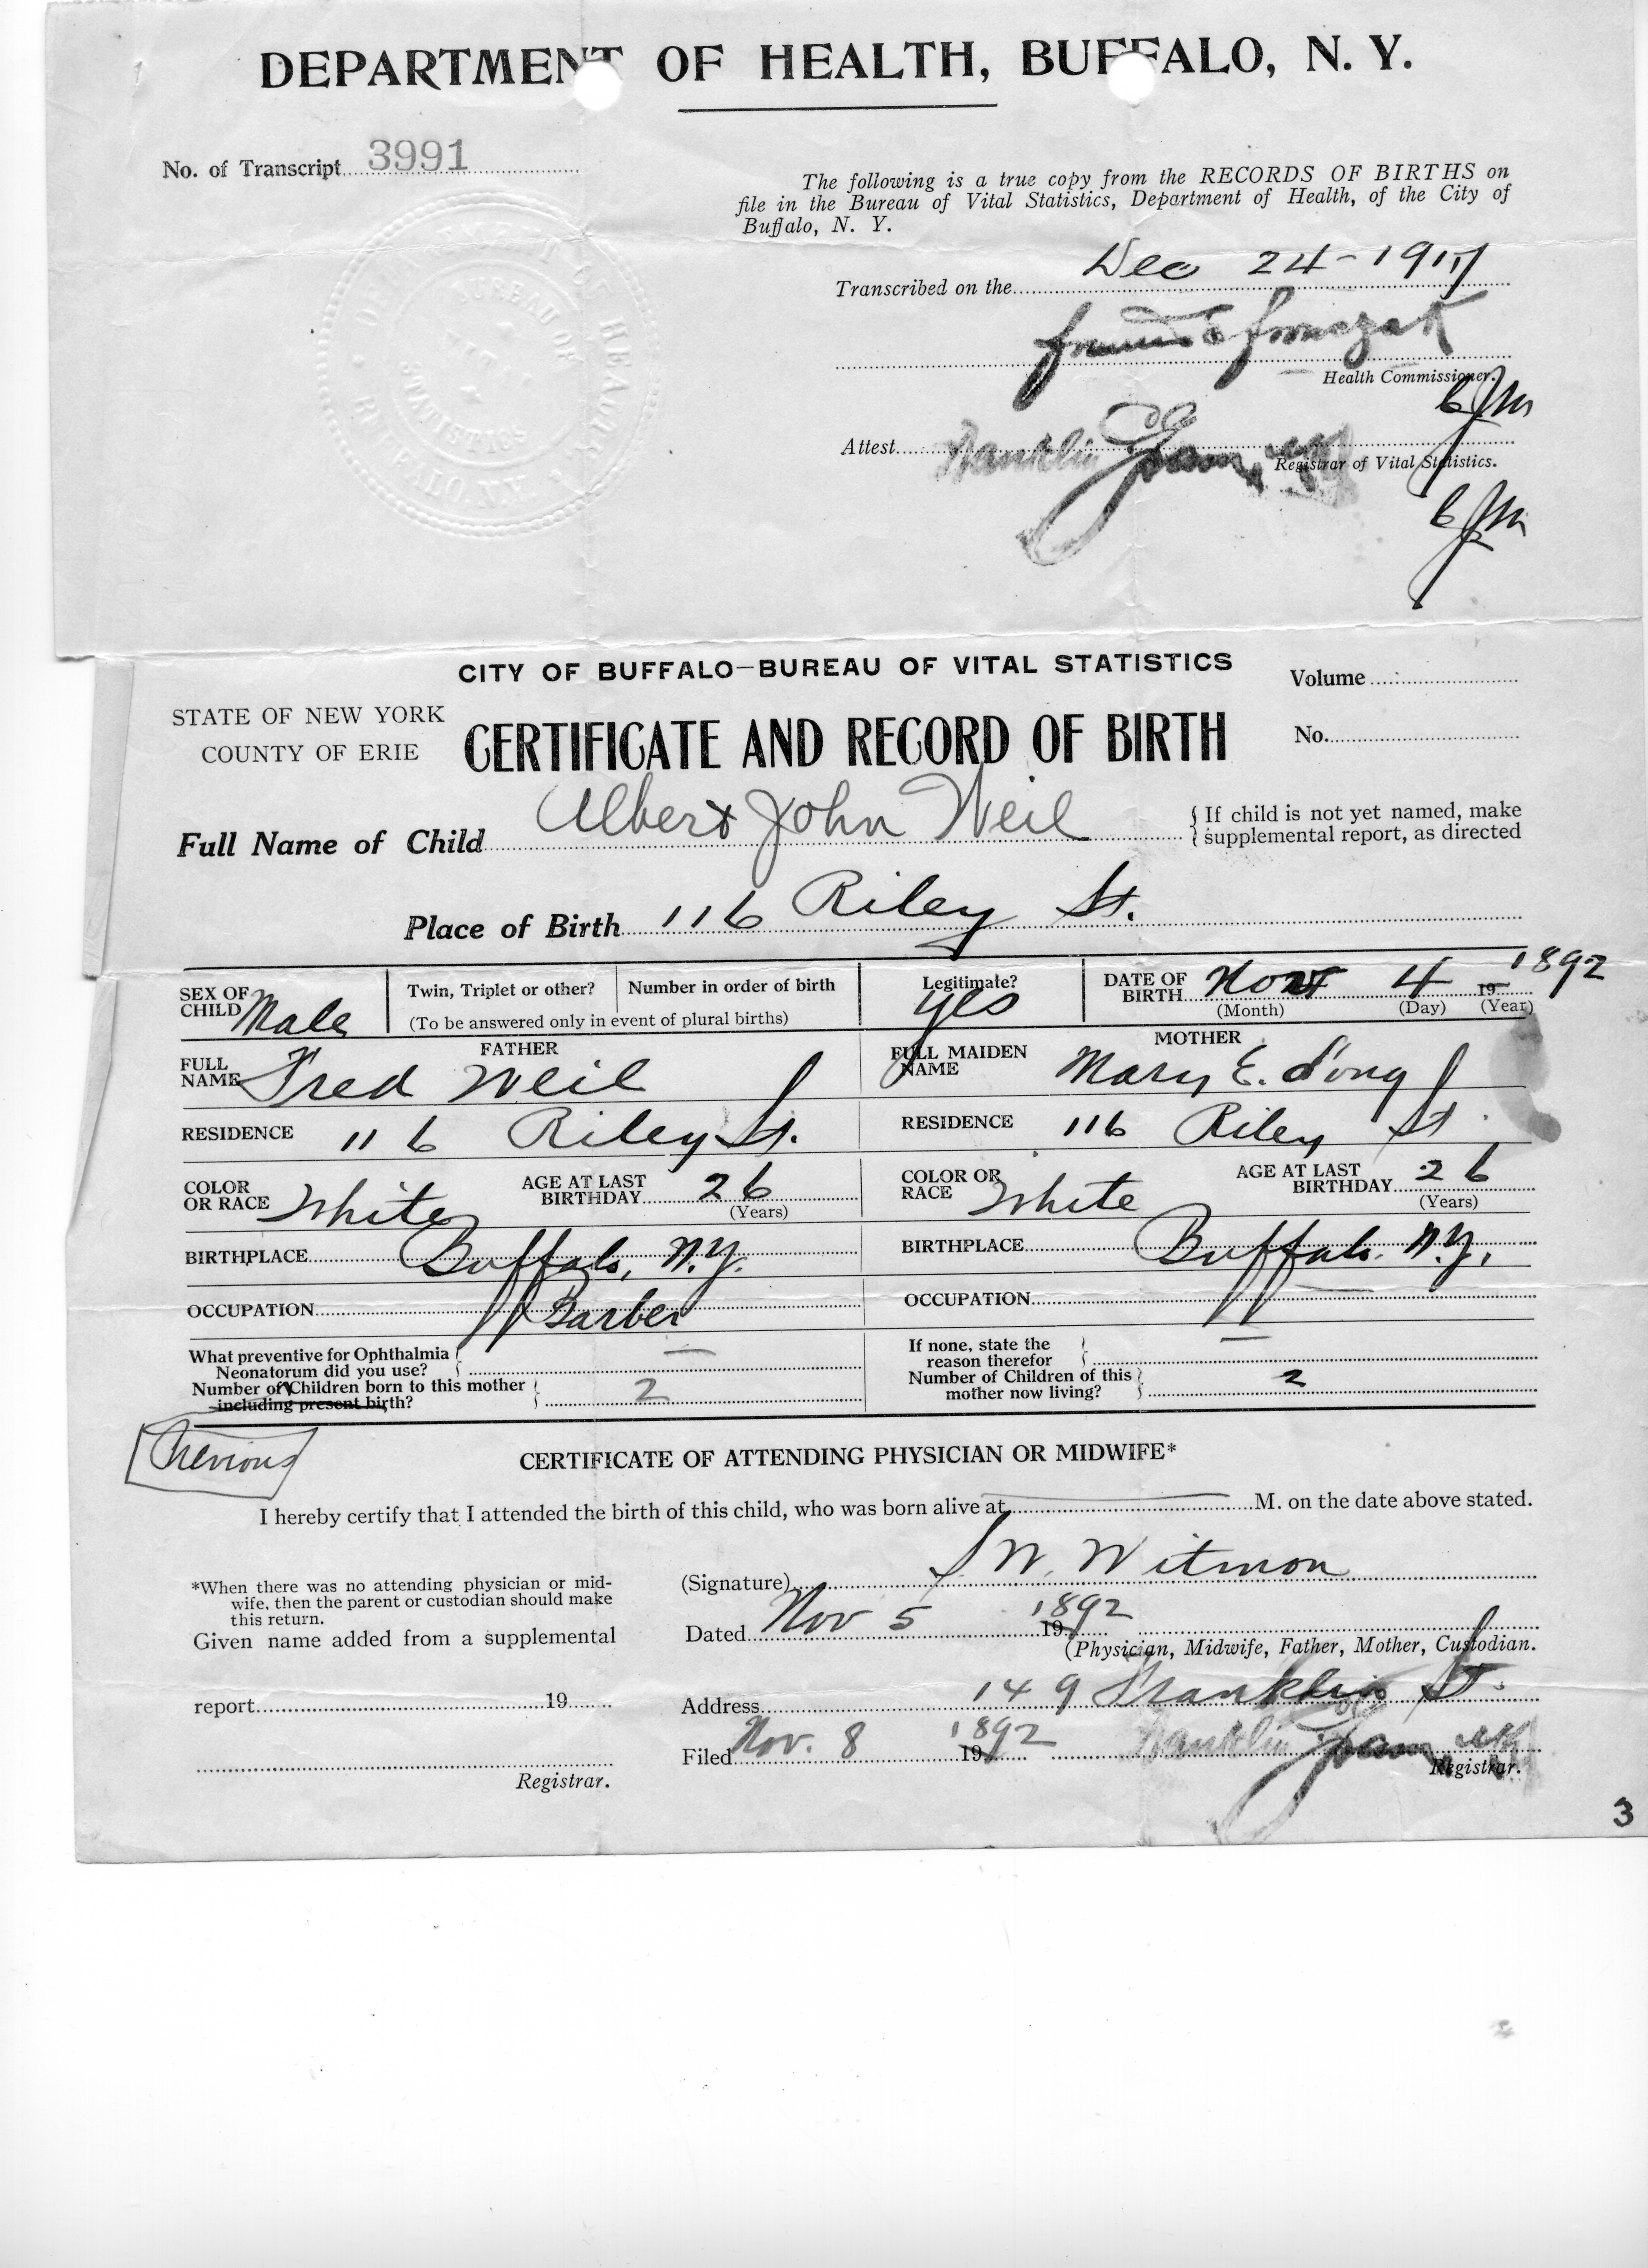 DEPARTMENT OF HEALTH, BUFFALO, N. Y.
No. of Transcript 3991
The following is a true copy from the RECORDS OF BIRTHS on
file in the Bureau of Vital Statistics, Department of Health, of the City of
Buffalo, N. Y.
Transcribed on the Dec 24-1917
Francis E Fronczak
Health Commissioner.
Attest Franklin C Gram
Registrar of Vital Statistics.
BUREAU OF
VITAL
STATISTICS
BUFFALO, N.Y.
CITY OF BUFFALO—BUREAU OF VITAL STATISTICS
Volume
STATE OF NEW YORK
COUNTY OF ERIE
CERTIFICATE AND RECORD OF BIRTH
No.
Full Name of Child Albert John Weil
If child is not yet named, make
supplemental report, as directed
Place of Birth 116 Riley St.
SEX OF CHILD Male
Twin, Triplet or other? Number in order of birth
(To be answered only in event of plural births)
Legitimate? yes
DATE OF BIRTH Nov 4 19 1892
(Month) (Day) (Year)
FATHER MOTHER
FULL NAME Fred Weil FULL MAIDEN NAME Mary E. Long
RESIDENCE 116 Riley St. RESIDENCE 116 Riley St
COLOR OR RACE White AGE AT LAST BIRTHDAY 26 (Years) COLOR OR RACE White AGE AT LAST BIRTHDAY 26 (Years)
BIRTHPLACE Buffalo, N.Y. BIRTHPLACE Buffalo. N.Y.
OCCUPATION Barber OCCUPATION
What preventive for Ophthalmia Neonatorum did you use? — If none, state the reason therefor —
Number of Children born to this mother including present birth? 2 Number of Children of this mother now living? 2
Previous
CERTIFICATE OF ATTENDING PHYSICIAN OR MIDWIFE*
I hereby certify that I attended the birth of this child, who was born alive at M. on the date above stated.
*When there was no attending physician or mid-
wife, then the parent or custodian should make
this return.
(Signature) W. Witmon
Dated Nov 5 19 1892
(Physician, Midwife, Father, Mother, Custodian.
Given name added from a supplemental
report 19
Address 149 Franklin St.
Filed Nov. 8 19 1892 Franklin C Gram
Registrar.
Registrar.
3